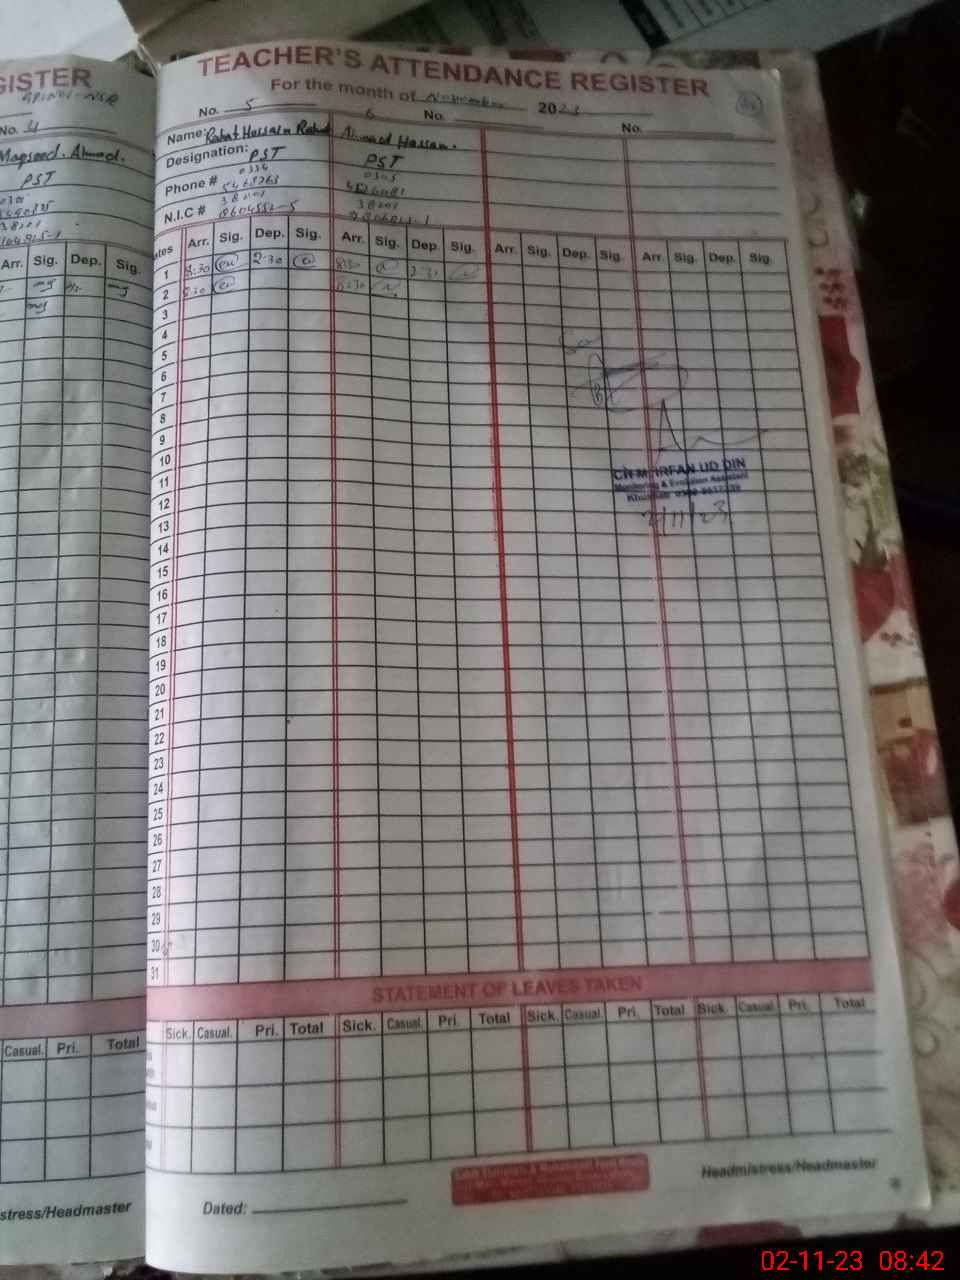 GISTER
No. 4
Maqsood. Ahmad.
PST
Arr. Sig. Dep. Sig.
Casual. Pri. Total
stress/Headmaster
TEACHER'S ATTENDANCE REGISTER
For the month of November 2023
No. 5 6 No. No.
Name: Rahat Hussain Ahmad Hassan.
Designation: PST PST
Phone # 0334 0305
N.I.C # 38201 38201
ates Arr. Sig. Dep. Sig. Arr. Sig. Dep. Sig. Arr. Sig. Dep. Sig. Arr. Sig. Dep. Sig.
1 8:30 2:30 8:30 2:30
2 8:30 8:30
3
4
5
6
7
8
9
10
11
12
13
14
15
16
17
18
19
20
21
22
23
24
25
26
27
28
29
30
31
CH M. IRFAN UD DIN
Monitoring & Evaluation Assistant
2/11/23
STATEMENT OF LEAVES TAKEN
Sick. Casual. Pri. Total Sick. Casual. Pri. Total Sick. Casual. Pri. Total Sick. Casual. Pri. Total
Headmistress/Headmaster
Dated:
02-11-23 08:42